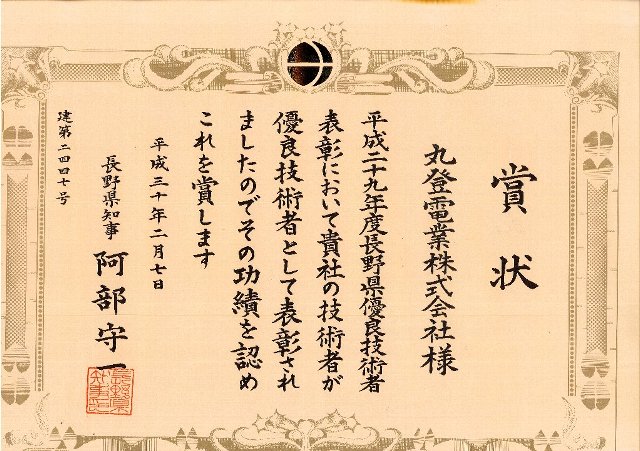 賞状
丸登電業株式会社様
平成二十九年度長野県優良技術者
表彰において貴社の技術者が
優良技術者として表彰され
ましたのでその功績を認め
これを賞します
平成三十年二月七日
長野県知事 阿部守一
長野県知事印
建第二四四七号